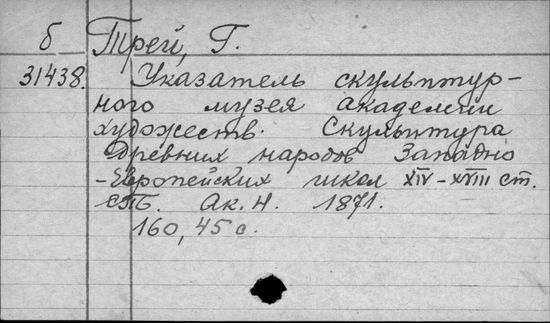 б Трей, Г.
31438. Указатель скульптур-
ного музея академии
художеств. Скульптура
Древних народов Западно
-Европейских школ XIV-XVIII ст.
СПБ. Ак. Н. 1871.
160, 45 с.